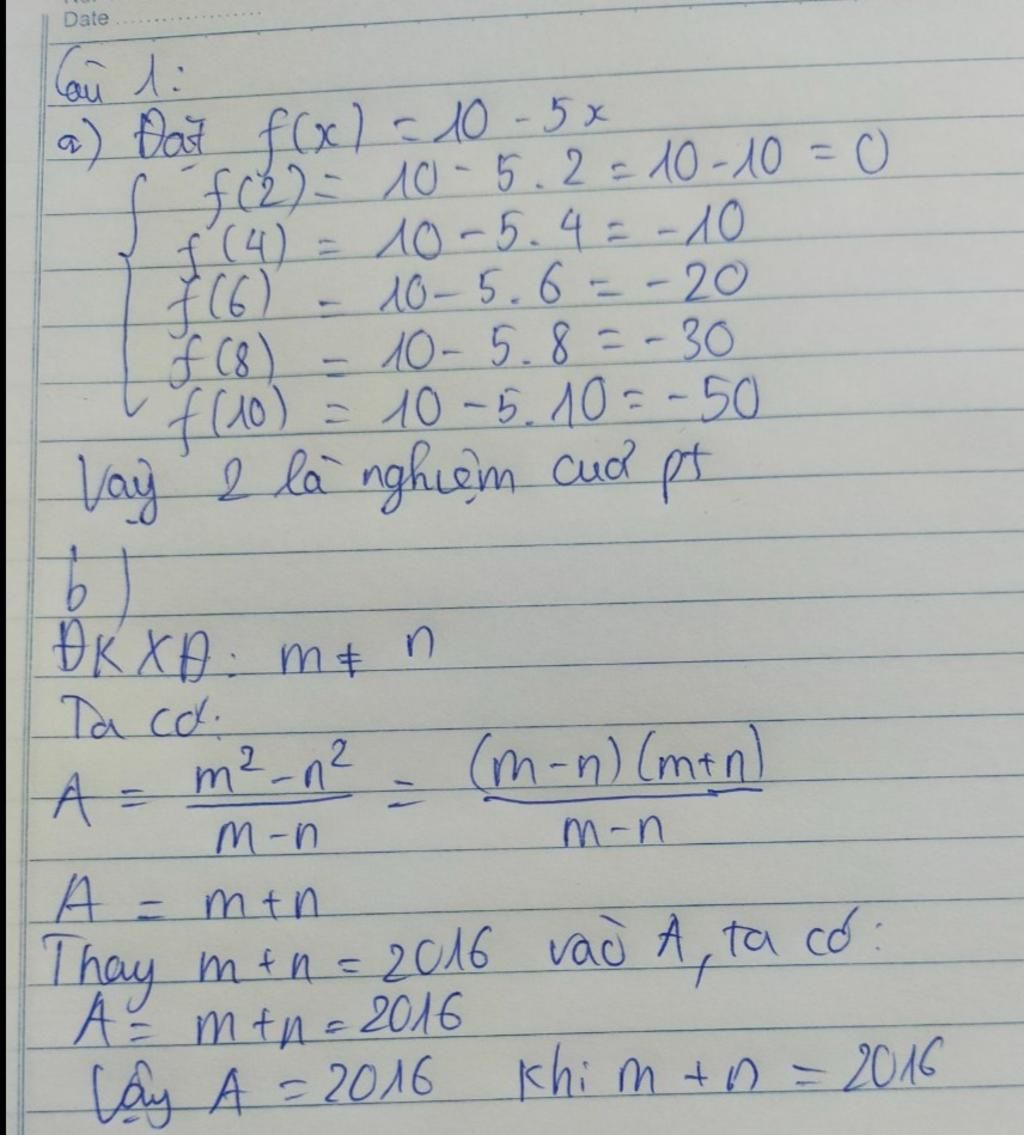 Date
Câu 1:
a) Đặt f(x) = 10 - 5x
f(2) = 10 - 5 . 2 = 10 - 10 = 0
f(4) = 10 - 5. 4 = - 10
f(6) = 10 - 5. 6 = - 20
f(8) = 10 - 5. 8 = - 30
f(10) = 10 - 5. 10 = - 50
Vậy 2 là nghiệm của pt
b)
ĐKXĐ: m ≠ n
Ta có:
A = (m² - n²)/(m - n) = ((m - n)(m + n))/(m - n)
A = m + n
Thay m + n = 2016 vào A, ta có:
A = m + n = 2016
Vậy A = 2016 khi m + n = 2016